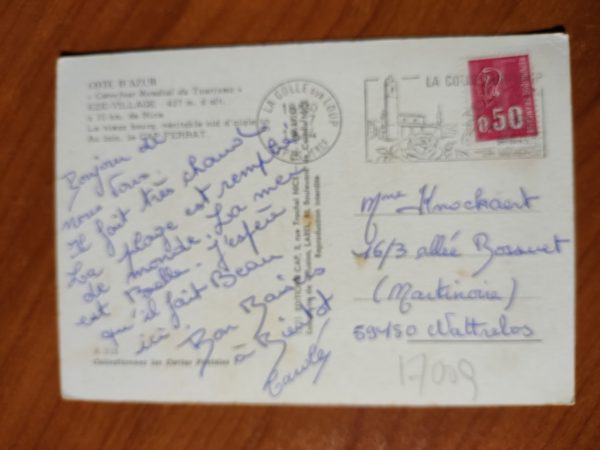 COTE D'AZUR
« Carrefour Mondial du Tourisme »
EZE-VILLAGE 427 m. d'alt.
à 10 km. de Nice
Le vieux bourg, véritable nid d'aigle
Au loin, le CAP FERRAT.
Bonjour de
nous Tous.
Il fait très chaud
La plage est remplie
de monde. La mer
est Belle. J'espère
qu'il fait Beau
ici.
Bon Baisers
à Bientôt
Carole
Collectionnez les Cartes Postales
EDITIONS CAP, 8, rue Trachel NICE
Reproduction interdite
LA COLLE SUR LOUP
LA CO
0,50
Mme Knockaert
16/3 allée Bossuet
(Martinoire)
59150 Wattrelos
17009